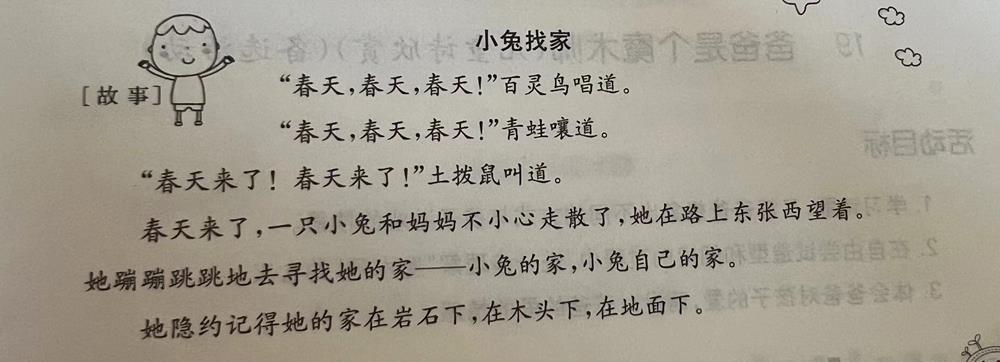 小兔找家
[故事]
“春天，春天，春天！”百灵鸟唱道。
“春天，春天，春天！”青蛙嚷道。
“春天来了！春天来了！”土拨鼠叫道。
春天来了，一只小兔和妈妈不小心走散了，她在路上东张西望着。
她蹦蹦跳跳地去寻找她的家——小兔的家，小兔自己的家。
她隐约记得她的家在岩石下，在木头下，在地面下。
19 爸爸是个魔术师
活动目标